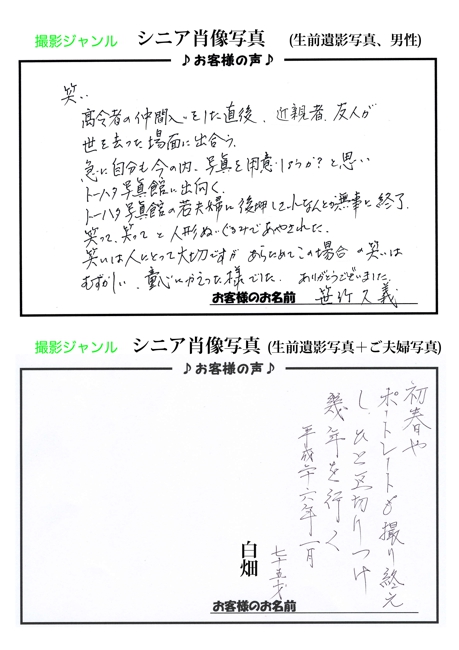 撮影ジャンル シニア肖像写真 (生前遺影写真、男性)
♪お客様の声♪
笑い
高令者の仲間入りをした直後、近親者、友人が
世を去った場面に出合う。
急に自分も今の内、写真を用意しようか?と思い
トーハタ写真館に出向く。
トーハタ写真館の若夫婦に後押しされなんとか無事に終了。
笑って、笑ってと人形ぬいぐるみであやされた。
笑いは人にとって大切ですがあらためてこの場合の笑いは
むずかしい、童心にかえった様でした。ありがとうございました。
お客様のお名前 笹行久義
撮影ジャンル シニア肖像写真 (生前遺影写真+ご夫婦写真)
♪お客様の声♪
初春や
ポートレートを撮り終え
しひと区切りつけ
幾年を行く
平成二十六年一月
七十五才
白畑
お客様のお名前